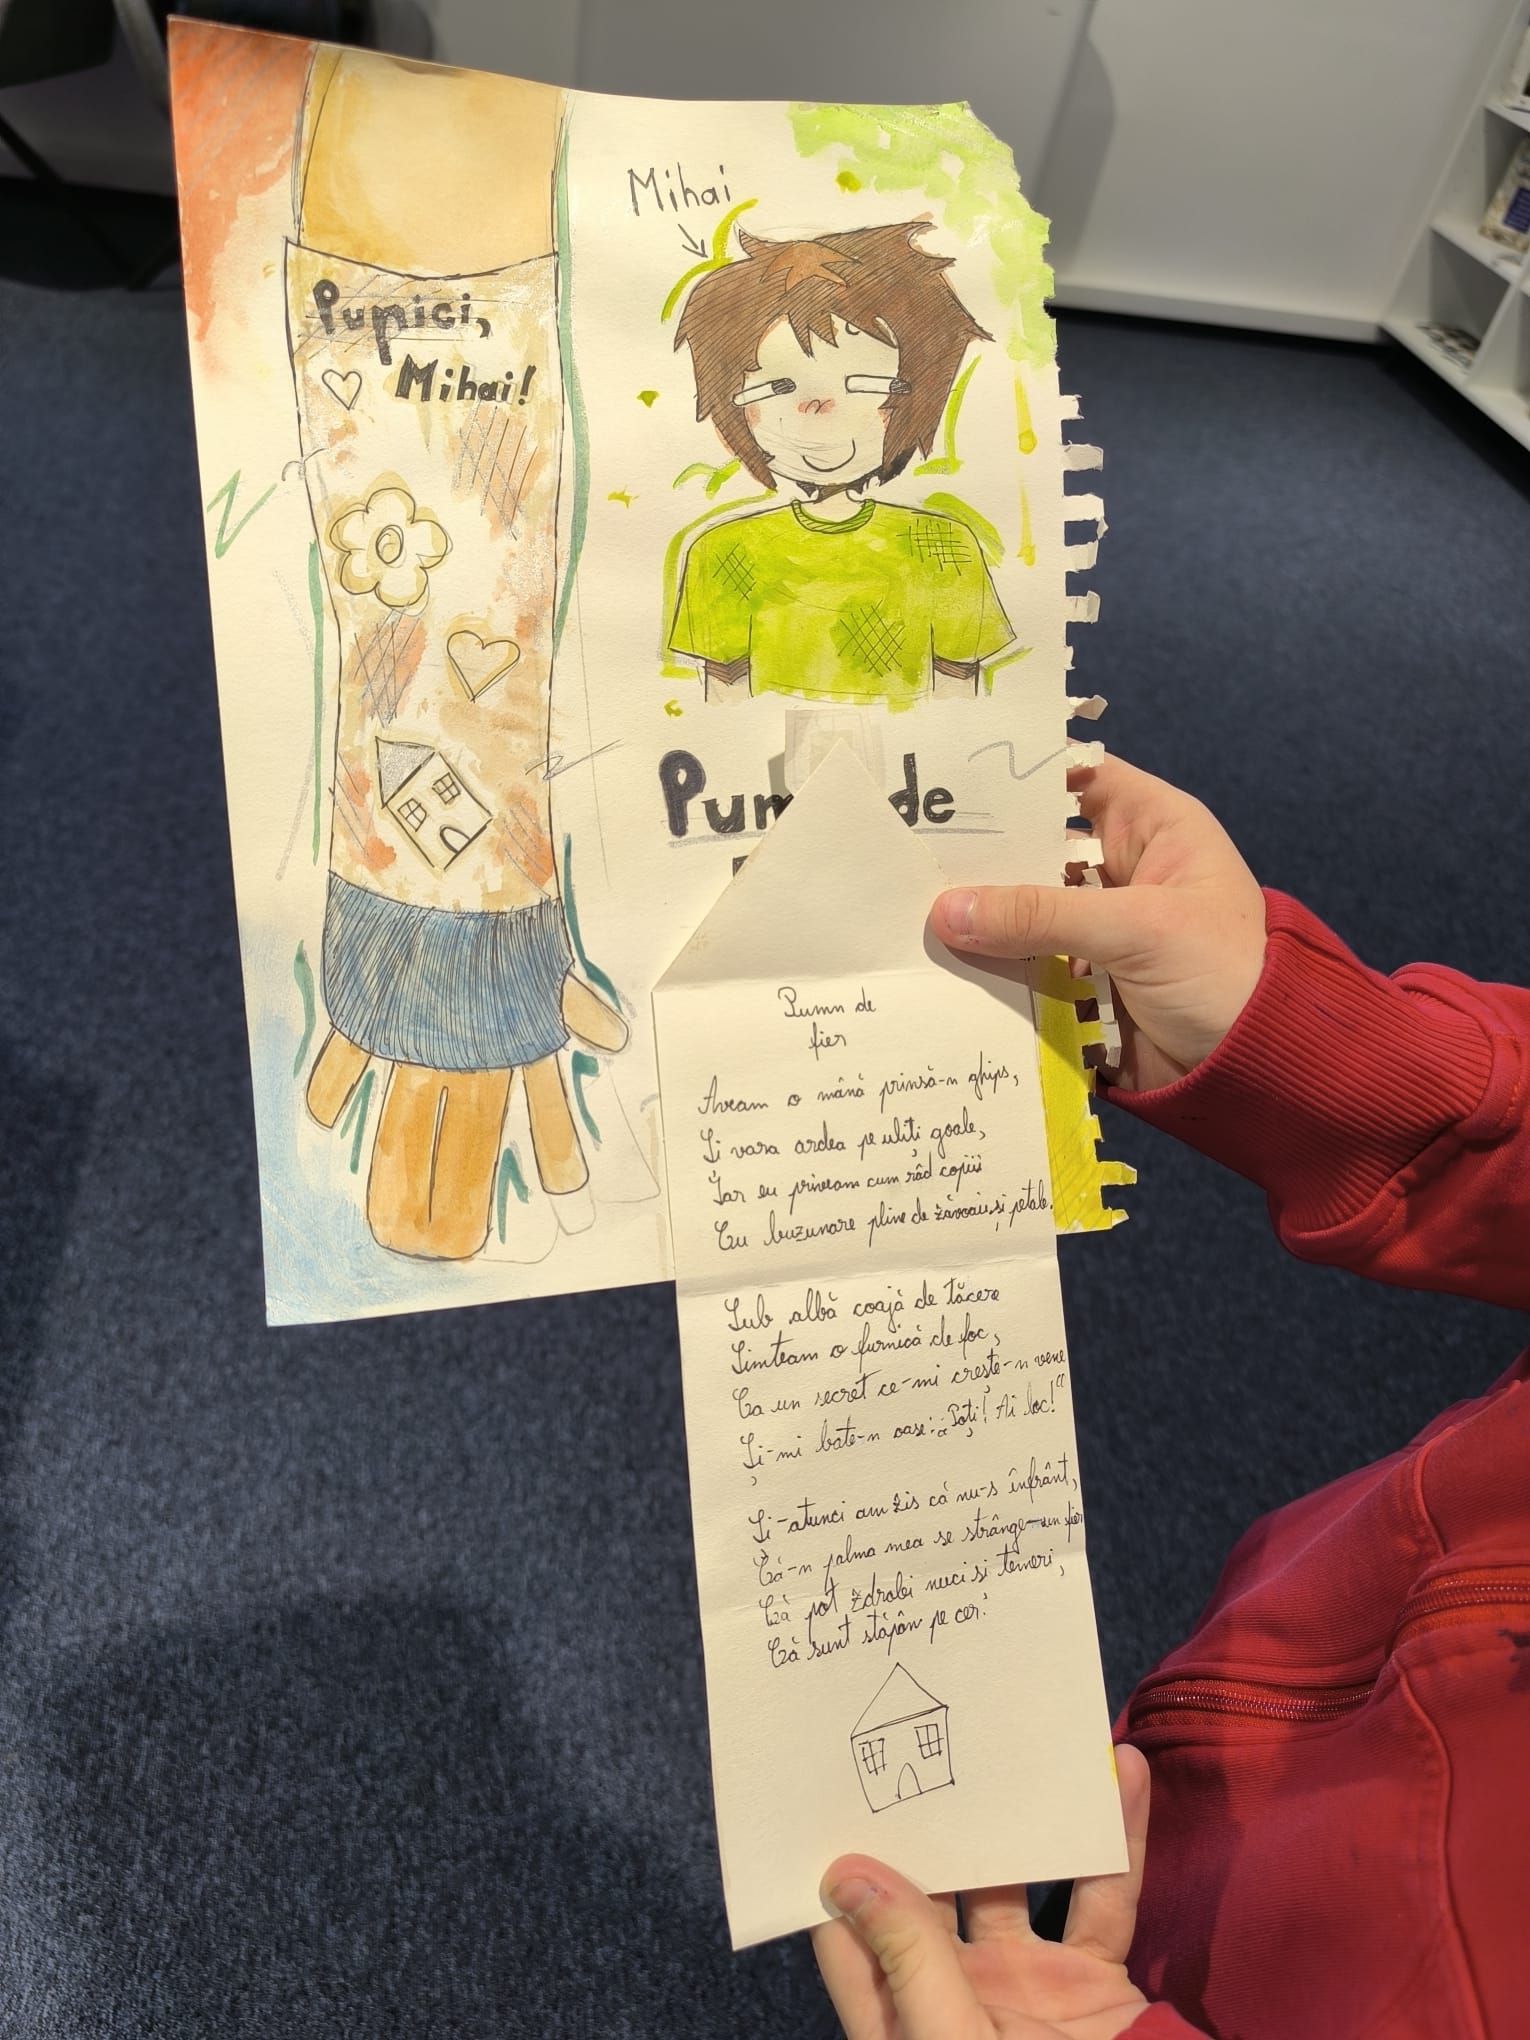 Pupici,
Mihai!
Mihai
Pum de
Pumn de
fier
Aveam o mână prinsă-n ghips,
Și vara ardea pe uliți goale,
Iar eu priveam cum râd copiii
Cu buzunare pline de și petale.
Sub albă coajă de tăcere
Simteam o furnică de foc,
Ca un secret ce-mi crește-n vene
Și-mi bate-n oase: „Poți! Ai loc!"
Și-atunci am zis că nu-s înfrânt,
Că-n palma mea se strânge-un fier
Că pot zdrobi nuci si temeri,
Că sunt stăpân pe cer!